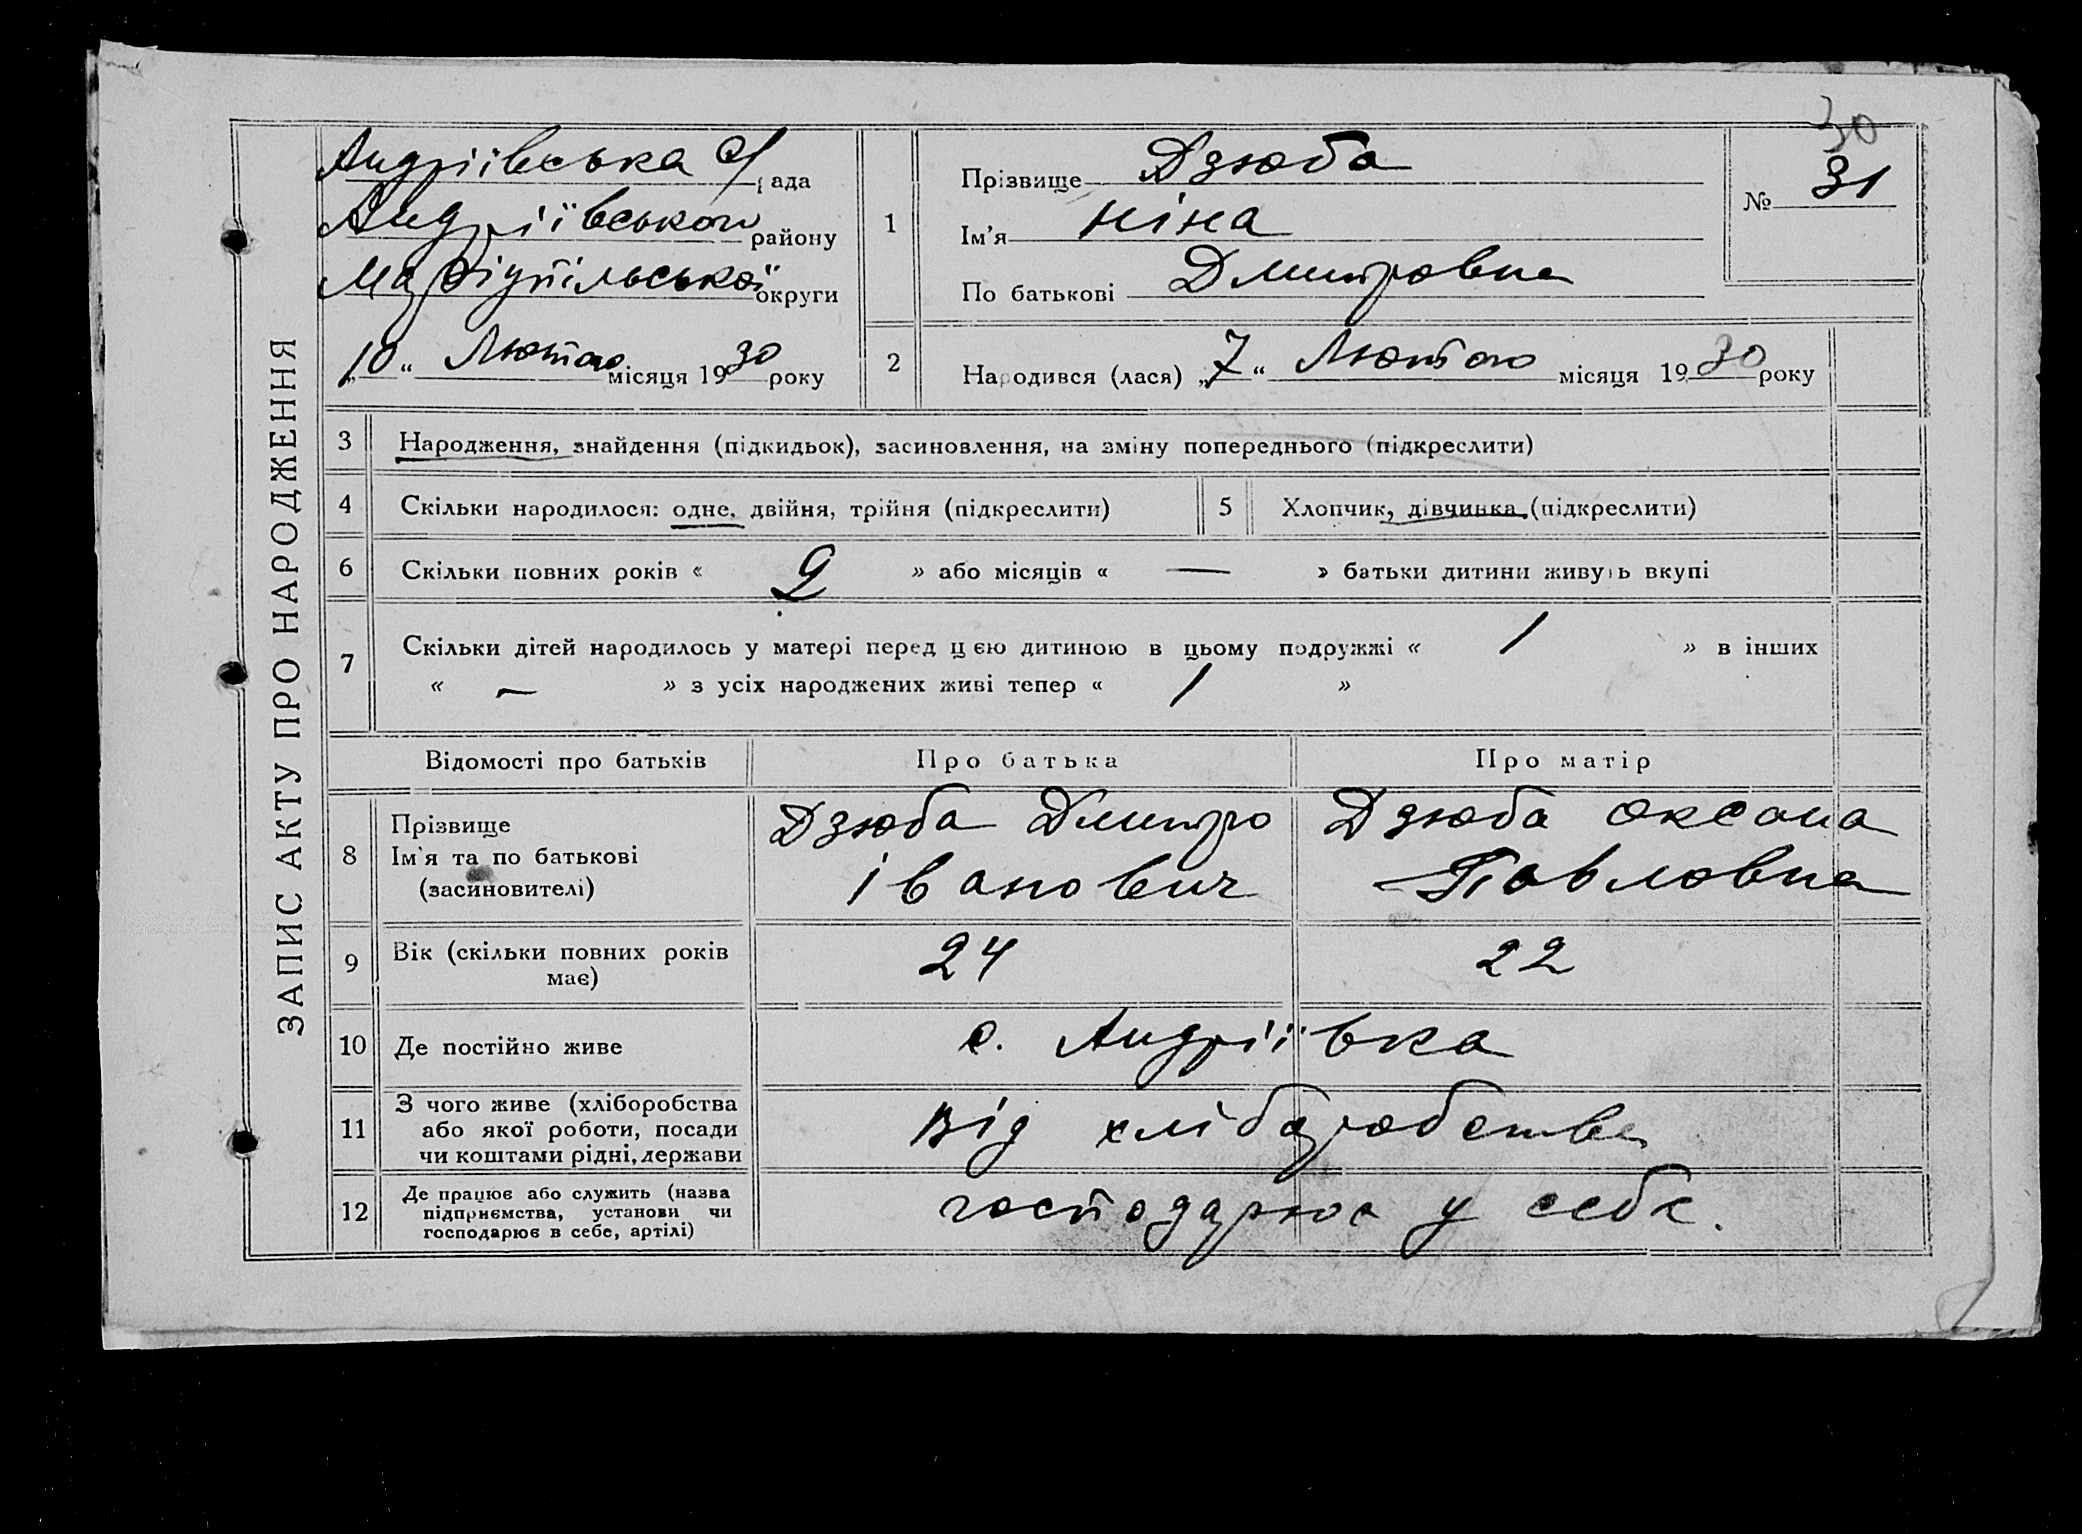 ЗАПИС АКТУ ПРО НАРОДЖЕННЯ
Андріївська с/рада
Андріївського району
Маріупільської округи
„10“ Лютого місяця 1930 року
30
№ 31
1 Прізвище Дзюба
Ім'я Ніна
По батькові Дмитровна
2 Народився (лася) „7“ Лютого місяця 1930 року
3 Народження, знайдення (підкидьок), засиновлення, на зміну попереднього (підкреслити)
4 Скільки народилося: одне, двійня, трійня (підкреслити) 5 Хлопчик, дівчинка (підкреслити)
6 Скільки повних років « 2 » або місяців « — » батьки дитини живуть вкупі
7 Скільки дітей народилось у матері перед цією дитиною в цьому подружжі « 1 » в інших
« — » з усіх народжених живі тепер « 1 »
Відомості про батьків Про батька Про матір
8 Прізвище
Ім'я та по батькові
(засиновителі)
Дзюба Дмитро
Іванович
Дзюба Оксана
Павловна
9 Вік (скільки повних років
має)
24 22
10 Де постійно живе с. Андріївка
11 З чого живе (хліборобства
або якої роботи, посади
чи коштами рідні, держави
Від хліборобства
12 Де працює або служить (назва
підприємства, установи чи
господарює в себе, артілі)
господарює у себе.